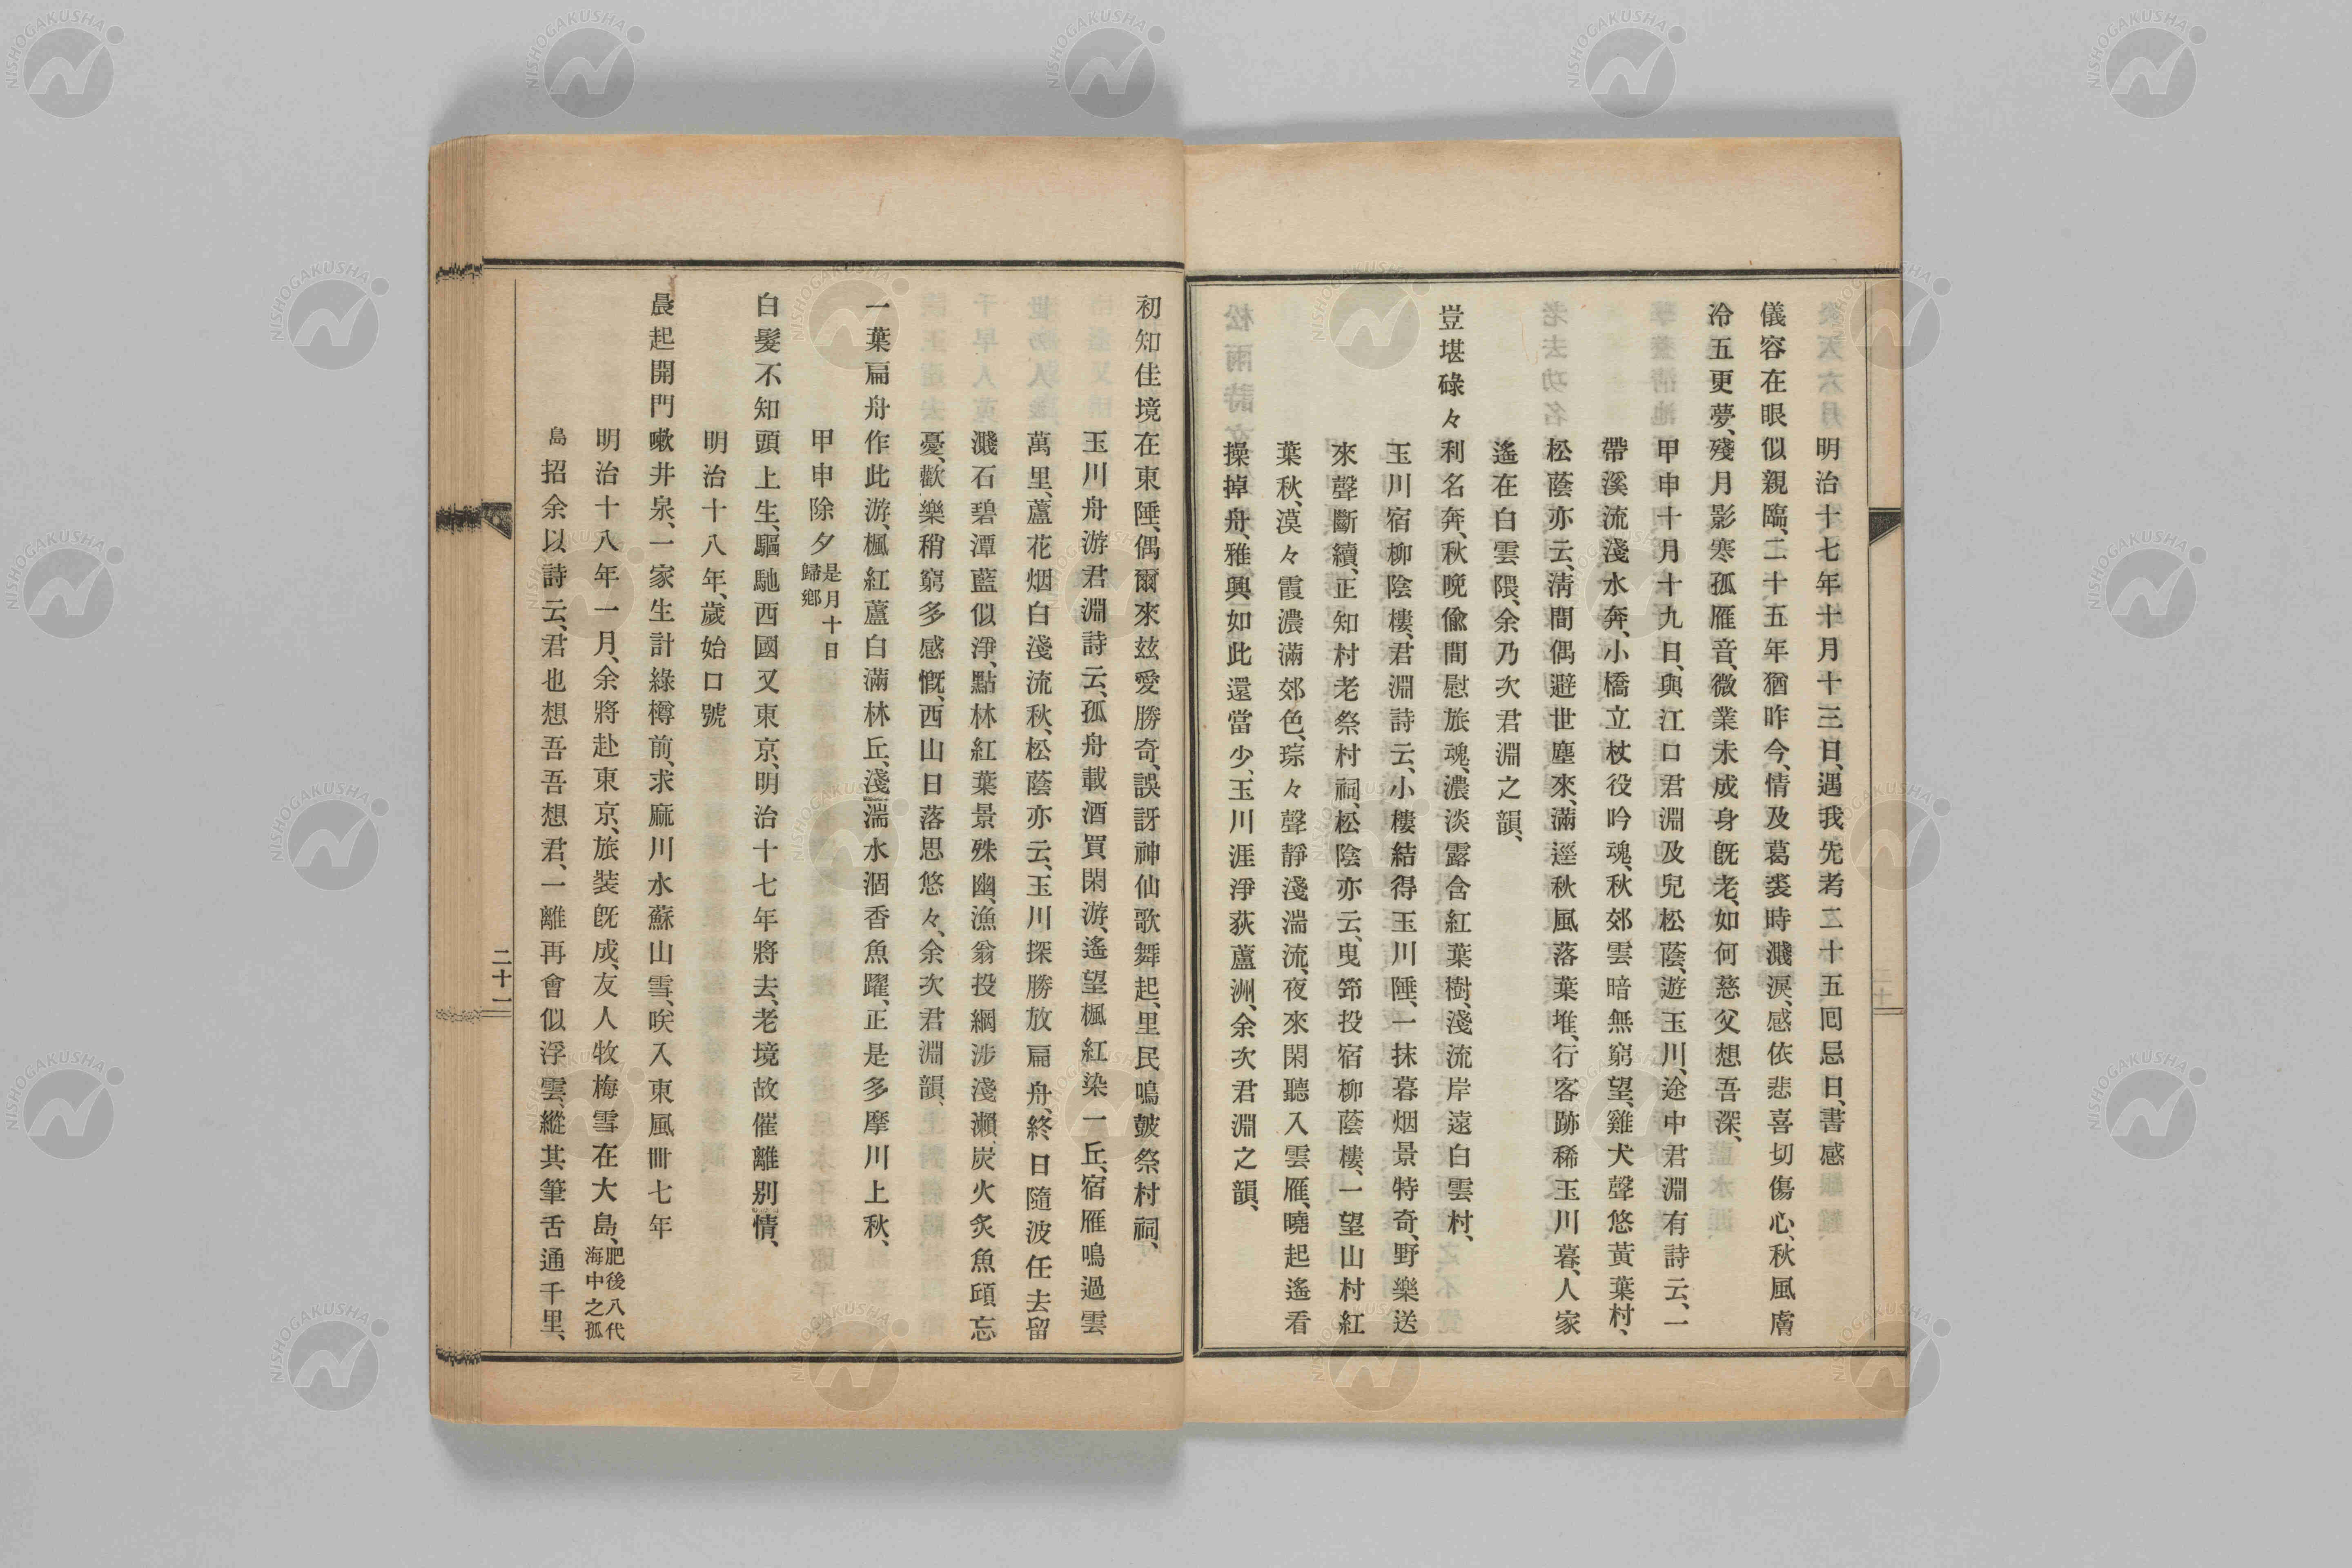 明治十七年十月十三日、遇我先考二十五囘忌日、書感
儀容在眼似親臨、二十五年猶咋今、情及葛裘時濺淚、感依悲喜切傷心、秋風膚
冷五更夢、殘月影寒孤雁音、微業未成身旣老、如何慈父想吾深、
甲申十月十九日、與江口君淵及兒松蔭、遊玉川、途中君淵有詩云、一
帶溪流淺水奔、小橋立杖役吟魂、秋郊雲暗無窮望、雞犬聲悠黃葉村、
松蔭亦云、淸間偶避世塵來、滿逕秋風落葉堆、行客跡稀玉川暮、人家
遙在白雲隈、余乃次君淵之韻、
豈堪碌々利名奔、秋晩偸間慰旅魂、濃淡露含紅葉樹、淺流岸遠白雲村、
玉川宿柳陰樓、君淵詩云、小樓結得玉川陲、一抹暮烟景特奇、野樂送
來聲斷續、正知村老祭村祠、松陰亦云、曳筇投宿柳蔭樓、一望山村紅
葉秋、漠々霞濃滿郊色、琮々聲靜淺湍流、夜來閑聽入雲雁、曉起遙看
操掉舟、雅興如此還當少、玉川涯淨荻蘆洲、余次君淵之韻、
初知佳境在東陲、偶爾來玆愛勝奇、誤訝神仙歌舞起、里民鳴皷祭村祠、
玉川舟游君淵詩云、孤舟載酒買閑游、遙望楓紅染一丘、宿雁鳴過雲
萬里、蘆花烟白淺流秋、松蔭亦云、玉川探勝放扁舟、終日隨波任去留
濺石碧潭藍似淨、點林紅葉景殊幽、漁翁投綱涉淺瀨、炭火炙魚頊忘
憂、歡樂稍窮多感慨、西山日落思悠々、余次君淵韻、
一葉扁舟作此游、楓紅蘆白滿林丘、淺湍水涸香魚躍、正是多摩川上秋、
甲申除夕是月十日歸鄕
白髮不知頭上生、驅馳西國又東京、明治十七年將去、老境故催離別情、
明治十八年、歲始口號
晨起開門嗽井泉、一家生計綠樽前、求麻川水蘇山雪、咲入東風卌七年
明治十八年一月、余將赴東京、旅裝旣成、友人牧梅雪在大島、肥後八代海中之孤
島招余以詩云、君也想吾吾想君、一離再會似浮雲、縱其筆舌通千里、
二十一
NISHOGAKUSHA